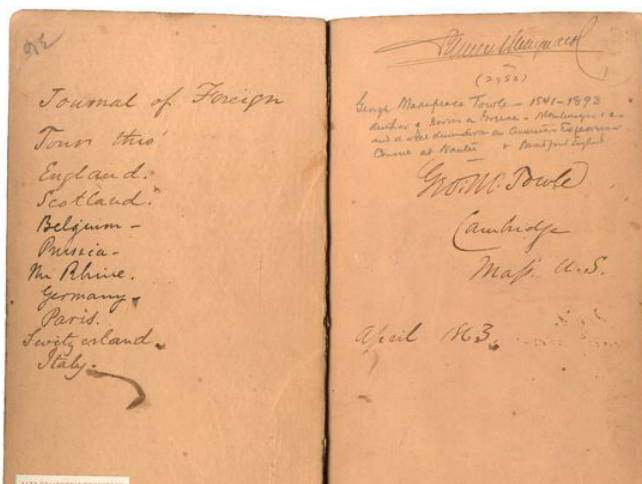 Journal of Foreign
Tour thro'
England.
Scotland.
Belgium -
Prussia -
the Rhine.
Germany.
Paris.
Switzerland.
Italy.
(2952)
George Makepeace Towle - 1841-1893
Author of
and a
Consul at Nantes & Bradford England
Geo: M. Towle
Cambridge
Mass. U.S.
April 1863.